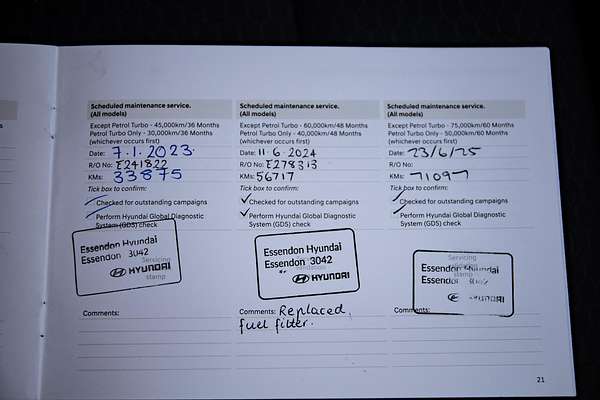 Scheduled maintenance service.
(All models)
Except Petrol Turbo - 45,000km/36 Months
Petrol Turbo Only - 30,000km/36 Months
(whichever occurs first)
Date: 7.1.2023.
R/O No: E241822
KMs: 33875
Tick box to confirm:
Checked for outstanding campaigns
Perform Hyundai Global Diagnostic
System (GDS) check
Essendon Hyundai
Essendon 3042
Servicing
HYUNDAI
stamp
Comments:
Scheduled maintenance service.
(All models)
Except Petrol Turbo - 60,000km/48 Months
Petrol Turbo Only - 40,000km/48 Months
(whichever occurs first)
Date: 11.6.2024
R/O No: E278313
KMs: 56717
Tick box to confirm:
Checked for outstanding campaigns
Perform Hyundai Global Diagnostic
System (GDS) check
Essendon Hyundai
Essendon 3042
HYUNDAI
Comments: Replaced
fuel filter.
Scheduled maintenance service.
(All models)
Except Petrol Turbo - 75,000km/60 Months
Petrol Turbo Only - 50,000km/60 Months
(whichever occurs first)
Date: 23/6/25
R/O No:
KMs: 71097
Tick box to confirm:
Checked for outstanding campaigns
Perform Hyundai Global Diagnostic
System (GDS) check
Servicing
Essendon Hyundai
Essendon
stamp
HYUNDAI
Comments:
21